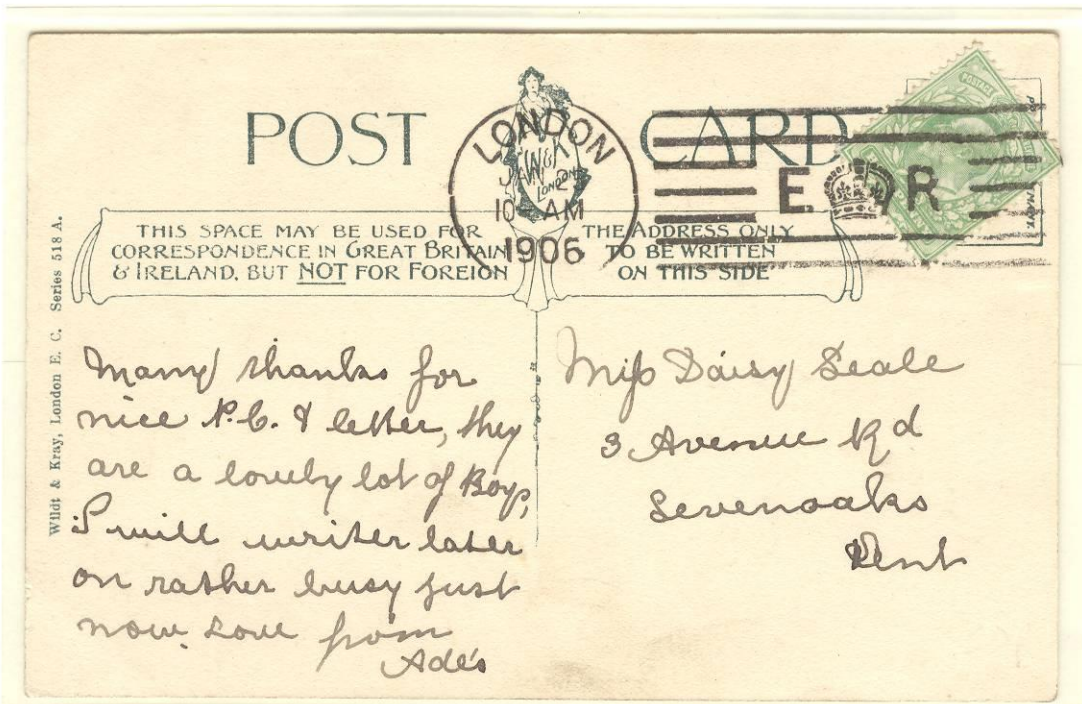 POST CARD
LONDON
W&K
LONDON
JAN 2
10 AM
1906
E R
POSTAGE
THIS SPACE MAY BE USED FOR
CORRESPONDENCE IN GREAT BRITAIN
& IRELAND, BUT NOT FOR FOREIGN
THE ADDRESS ONLY
TO BE WRITTEN
ON THIS SIDE
Wildt & Kray, London E. C. Series 518 A.
Many thanks for
nice P.C. & letter, they
are a lovely lot of Boys,
I will writer later
on rather busy just
now. Love from
Ade's
Miss Daisy Seale
3 Avenue Rd
Sevenoaks
Kent